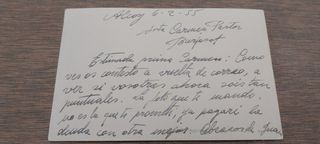 Alcoy 6-2-55
Srta Carmen Pastor
Burjasot
Estimada prima Carmen: Como
ves os contesto a vuelta de correo, a
ver si vosotros ahora sois tan
puntuales. La foto que te mando
no es la que te prometí, ya pagaré la
deuda con otra mejor. Abrazos de Juan